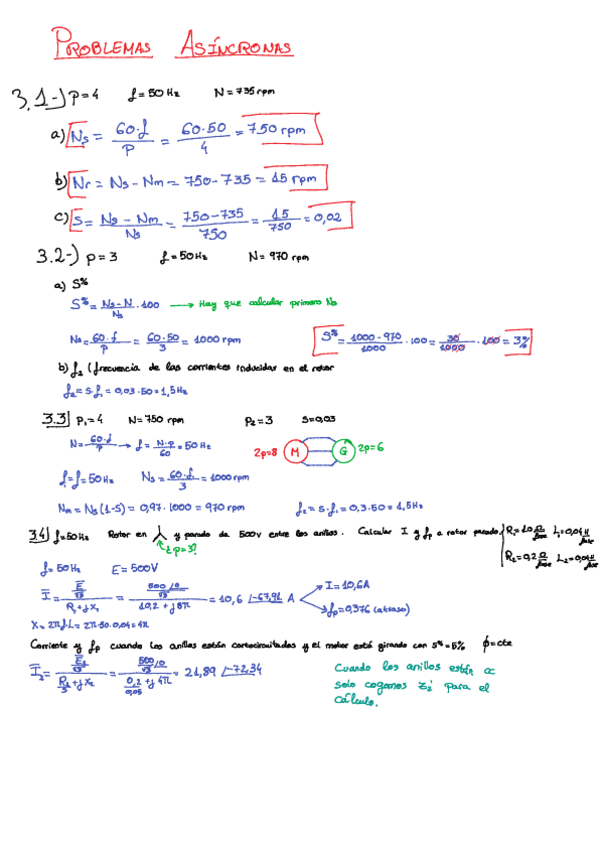 PROBLEMAS ASÍNCRONAS
3.1-) P=4 f=50Hz N=735rpm
a) Ns = 60·f / P = 60·50 / 4 = 750 rpm
b) Nr = Ns - Nm = 750-735 = 15 rpm
c) S = Ns - Nm / Ns = 750-735 / 750 = 15 / 750 = 0,02
3.2-) p=3 f=50Hz N=970 rpm
a) S%
S% = Ns-N / Ns · 100 → Hay que calcular primero Ns
Ns = 60·f / P = 60·50 / 3 = 1000 rpm S% = 1000-970 / 1000 · 100 = 30 / 1000 · 100 = 3%
b) f2 (frecuencia de las corrientes inducidas en el rotor
f2 = S·f1 = 0,03·50 = 1,5Hz
3.3 P1=4 N=750 rpm P2=3 S=0,03
N = 60·f / P → f = N·P / 60 = 50 Hz 2p=8 M G 2p=6
f=f=50Hz Ns = 60·f / 3 = 1000rpm
Nm = Ns(1-S) = 0,97·1000 = 970 rpm f2 = S·f1 = 0,3·50 = 1,5Hz
3.4 f=50Hz Rotor en y parado da 500v entre los anillos. Calcular I y fp a rotor parado R1=10 Ω/fase L1=0,04 H/fase
¿p=3? R2=0,2 Ω/fase L2=0,04 H/fase
f=50Hz E=500V
I = E/√3 / R1+jX1 = 500/0 / √3 / 10,2+j8π = 10,6 /-67,91 A → I=10,6A
→ fp=0,376 (atraso)
X = 2πf·L = 2π·50·0,04 = 4π
Corriente y fp cuando los anillos están cortocircuitados y el motor está girando con S%=5% ϕ=cte
I2 = E2/√3 / R2/S + jX2 = 500/0 / √3 / 0,2/0,05 + j4π = 21,89 /-72,34
Cuando los anillos están cc
solo cogemos Z2' para el
cálculo.